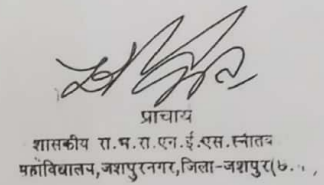 प्राचाय
शासकीय रा.भ.रा.एन.ई.एस.स्नातव
महाविद्यालय,जशपुरनगर,जिला-जशपुर(